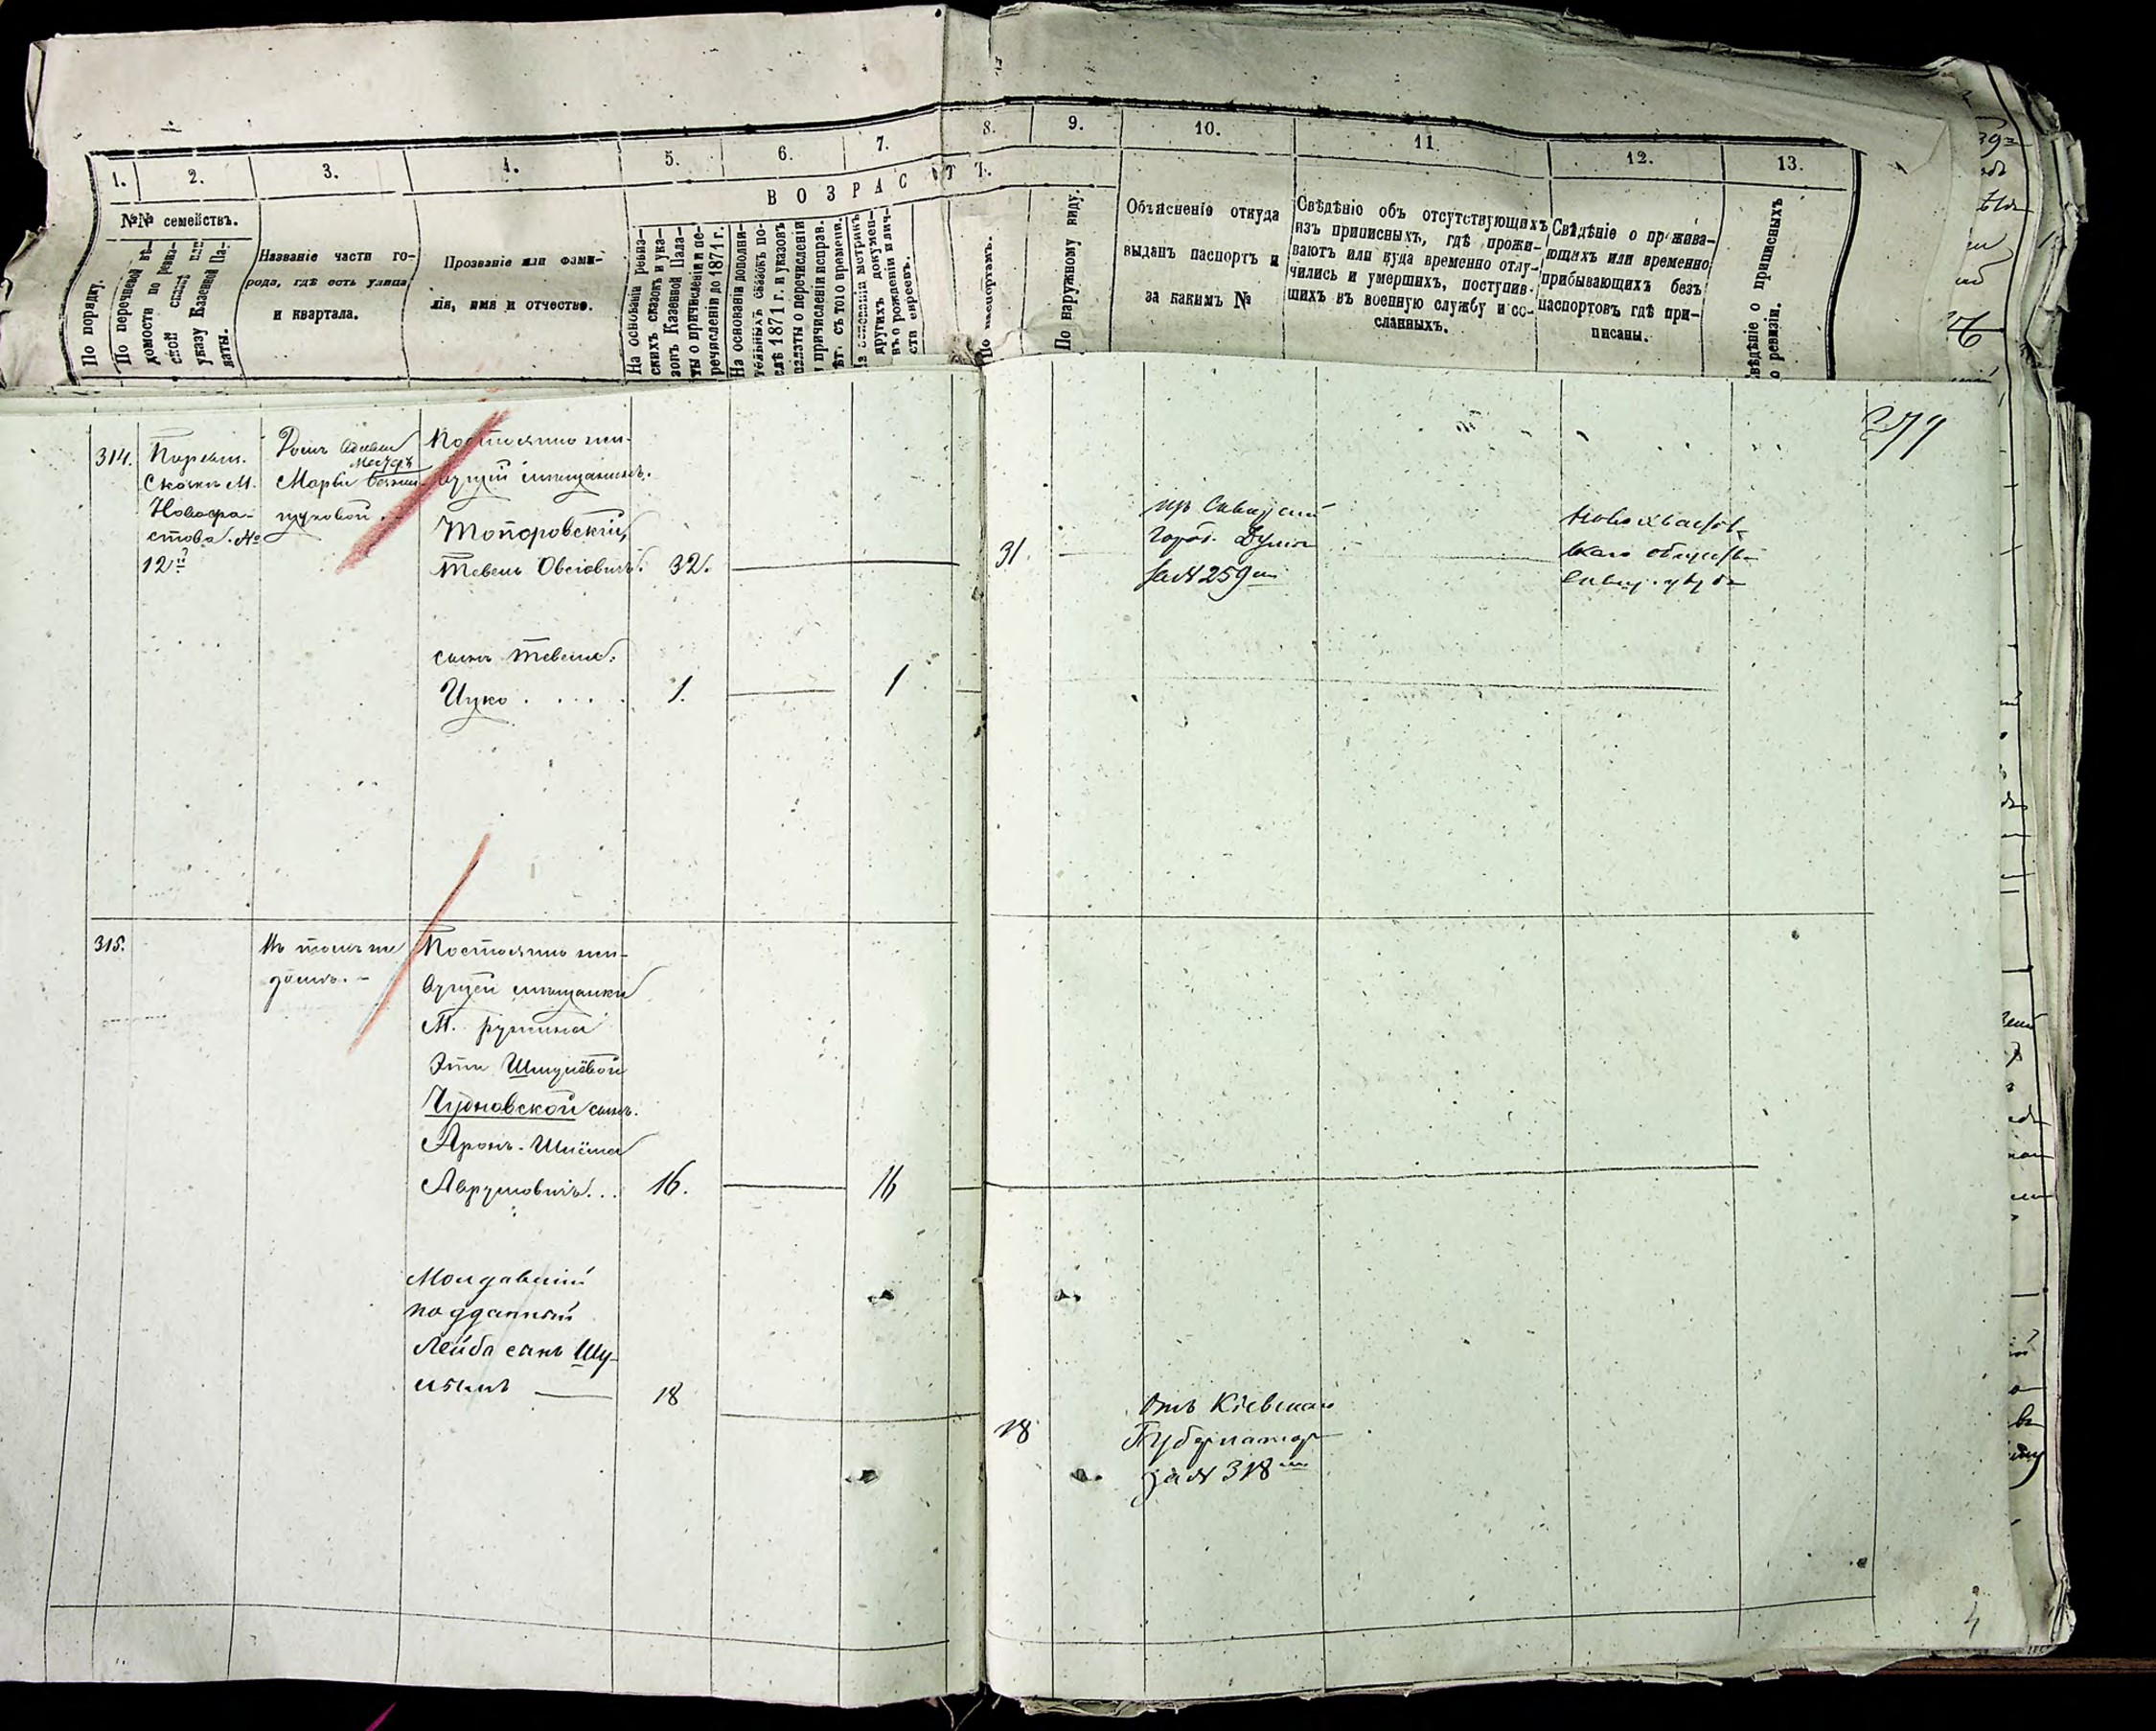 1.
2.
3.
4.
5.
6.
7.
8.
9.
10.
11.
12.
13.
ВОЗРАСТЪ.
№№ семействъ.
По порядку.
По перечневой вѣ-
домости по ревиз-
ской сказкѣ или
указу Казенной Па-
латы.
Названіе части го-
рода, гдѣ есть улица
и квартала.
Прозваніе или фами-
лія, имя и отчество.
На основаніи ревиз-
скихъ сказокъ и ука-
зовъ Казенной Пала-
ты о причисленіи и пе-
речисленіи до 1871 г.
На основаніи дополни-
тельныхъ сказокъ по-
слѣ 1871 г. и указовъ
палаты о перечисленіи
и причисленіи исправ.
лѣт. съ того времени.
На основаніи метрикъ
другихъ докумен-
въ о рожденіи и лич-
ств евреевъ.
По паспортамъ.
По наружному виду.
Объясненіе откуда
выданъ паспортъ и
за какимъ №
Свѣдѣніе объ отсутствующихъ
изъ приписныхъ, гдѣ прожи-
ваютъ или куда временно отлу-
чились и умершихъ, поступив-
шихъ въ военную службу и со-
сланныхъ.
Свѣдѣніе о прожива-
ющихъ или временно
прибывающихъ безъ
паспортовъ гдѣ при-
писаны.
Свѣдѣніе о приписныхъ
по ревизіи.
277
314.
Сказкѣ М.
Новофа-
стова. №
12й
Домъ
Марьи
Постоянно жи-
вущій мѣщанинъ.
Топоровскій,
Тевель Овсіовичъ.
32.
31.
Город. Думы
за № 259м
Новохвастов-
скаго общества
Сквир. уѣзда
сынъ Тевеля:
Ицко . . . .
1.
1
315.
Въ томъ же
домѣ. –
Постоянно жи-
вущей мѣщанки
М. Ружина
Эти Шмулёвой
Чудновской сынъ.
Аронъ-Шлёма
Аврумовичъ. . .
16.
16
Молдавскій
подданный
Лейба сынъ Шу-
18
18
Отъ Кіевскаго
Губернатор
за № 318м